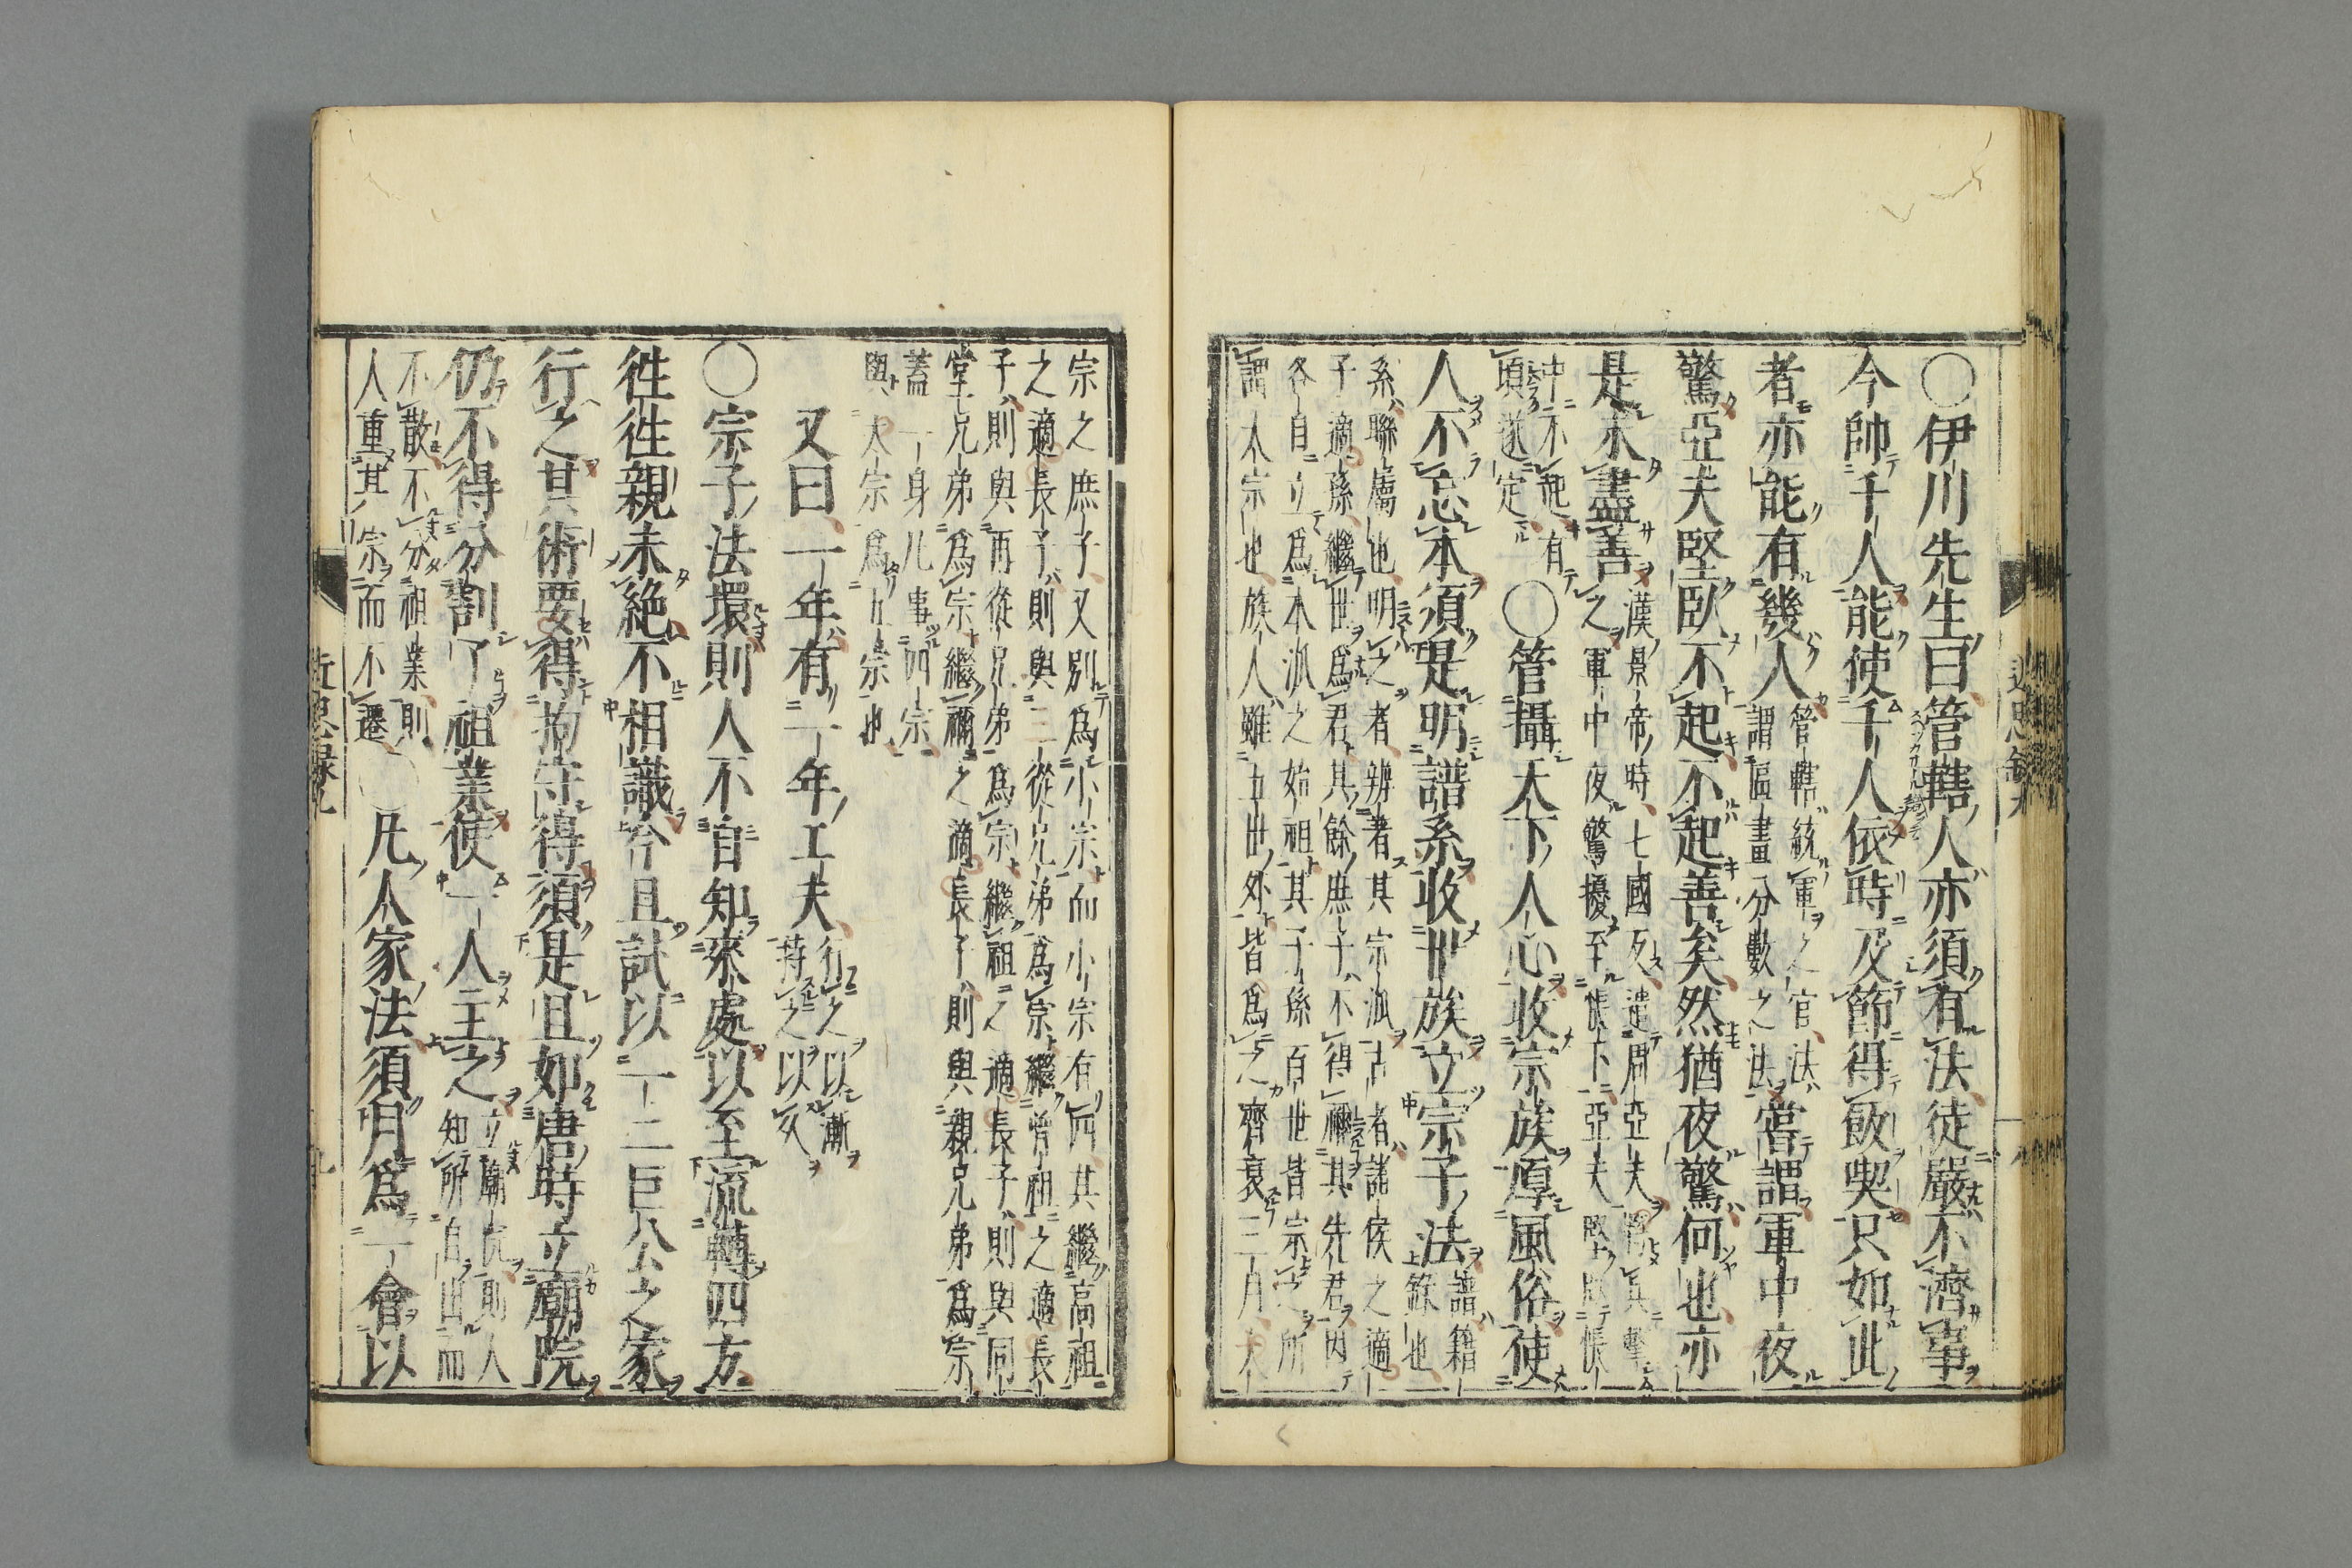 〇伊川先生曰管轄人亦須有法徒嚴不濟事
今帥千人能使千人依時及節得飯喫只如此
者亦能有幾人管轄統軍之官法
謂區畫分數之法甞謂軍中夜
驚亞夫堅臥不起不起善矣然猶夜驚何也亦
是未盡善漢景帝時七國反遣周亞夫將兵擊
之軍中夜驚擾至帳下亞夫堅臥帳
中不起有
頃遂定〇管攝天下人心收宗族厚風俗使
人不忘本須是明譜系收世族立宗子法譜籍
錄也
系聯屬也明之者辨著其宗派古者諸侯之適
子適孫繼世爲君其餘庶子不得禰其先君因
各自立爲本派之始祖其子孫百世皆宗之所
謂大宗也族人雖五世外皆爲之齊衰三月大
宗之庶子又別爲小宗而小宗有四其繼高祖
之適長子則與三從兄弟爲宗繼曾祖之適長
子則與再從兄弟爲宗繼祖之適長子則與同
堂兄弟爲宗繼禰之適長子則與親兄弟爲宗
蓋一身凡事四宗
與大宗爲五宗也
又曰一年有一年工夫行之以漸
持之以久
〇宗子法壞則人不自知來處以至流轉四方
徃徃親未絶不相識今且試以一二巨公之家
行之其術要得拘守得須是且如唐時立廟院
仍不得分割了祖業使一人主之立廟院則人
知所自出而
不散不分祖業則
人重其宗而不遷〇凡人家法須月爲一會以
近思錄九